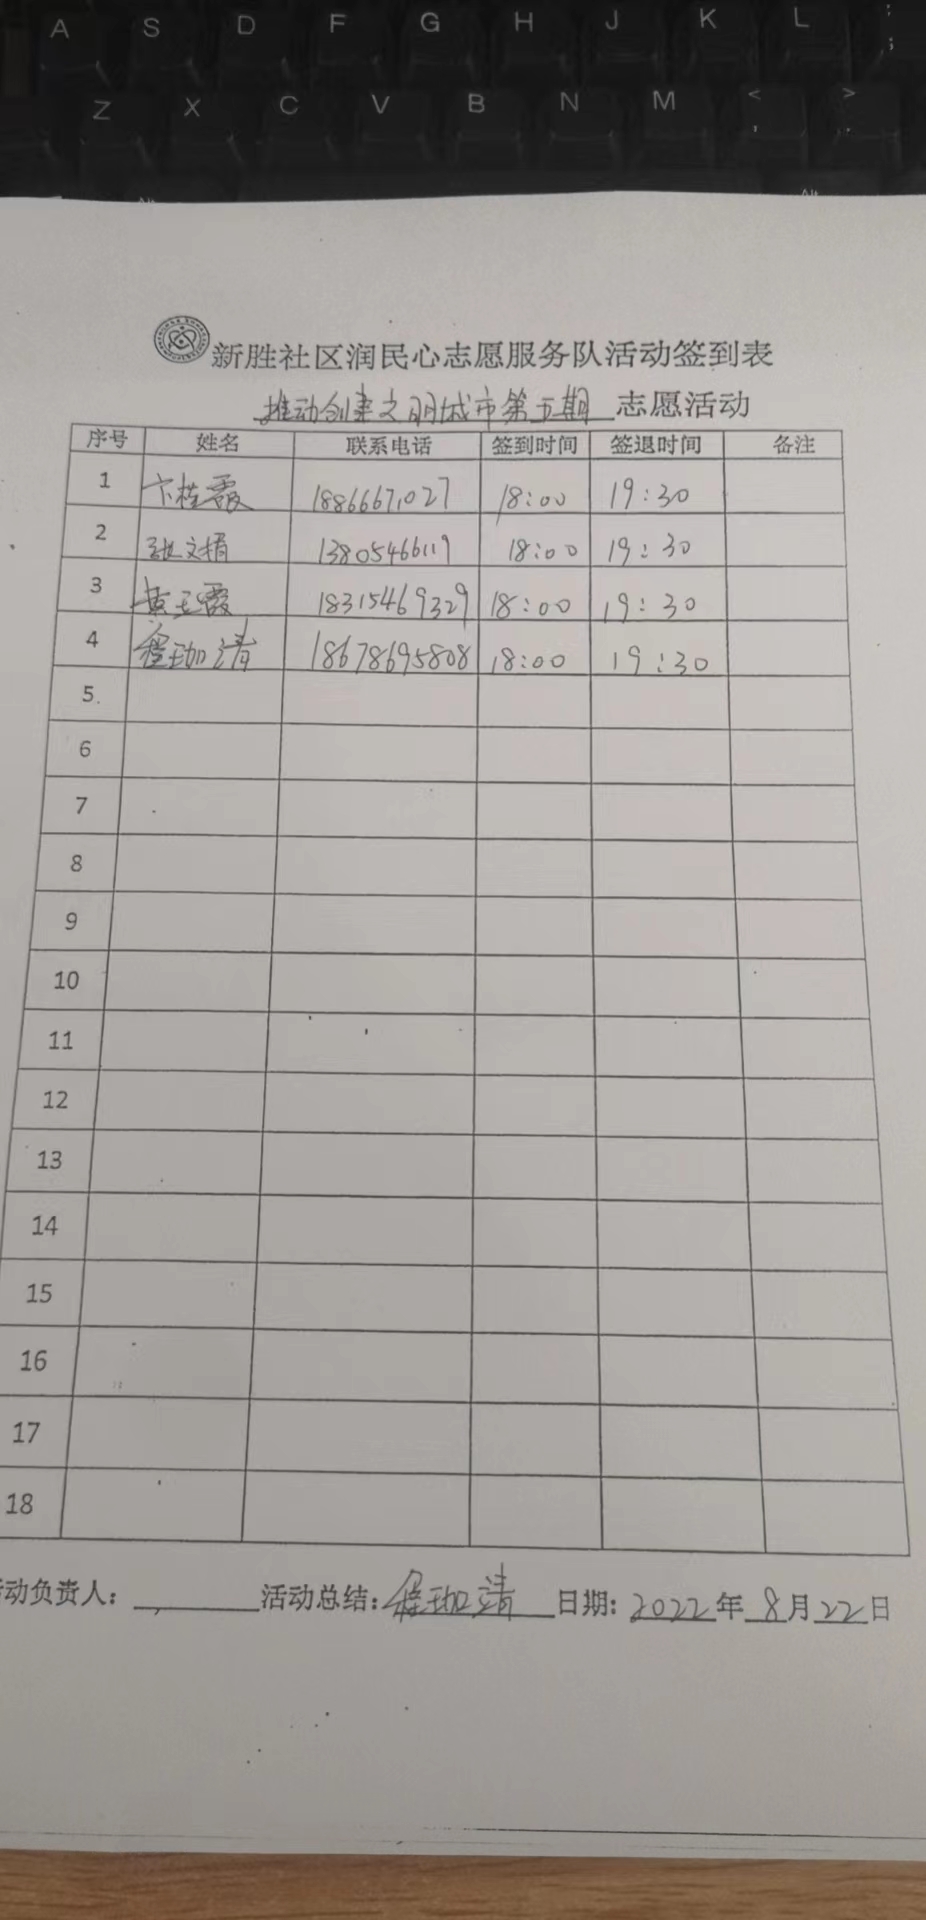 A S D F G H J K L : ;
Z X C V B N M < , > .
Alt Alt
新胜社区润民心志愿服务队活动签到表
推动创建文明城市第五期 志愿活动
序号 姓名 联系电话 签到时间 签退时间 备注
1 卞桂霞 18866671027 18:00 19:30
2 张文捐 13805466119 18:00 19:30
3 黄玉霞 18315469329 18:00 19:30
4 程珈清 18678695808 18:00 19:30
5
6
7
8
9
10
11
12
13
14
15
16
17
18
动负责人: 活动总结: 程珈清 日期: 2022年8月22日